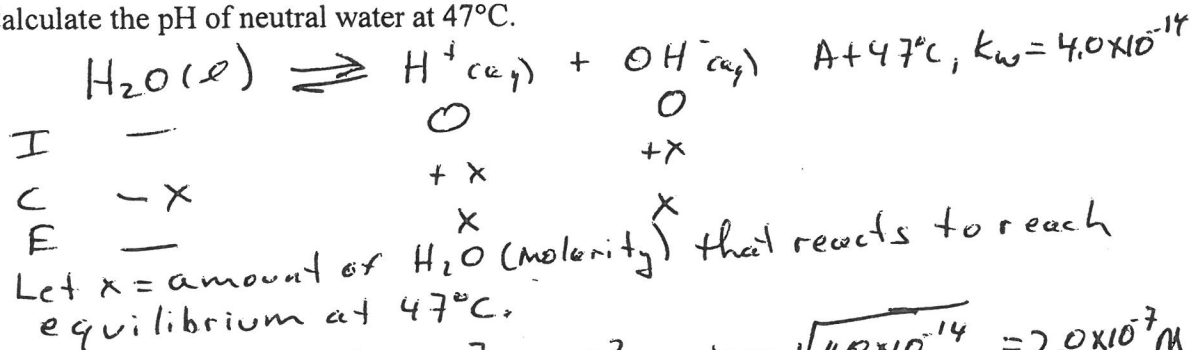 alculate the pH of neutral water at 47°C.
H₂O(l) ⇌ H⁺(aq) + OH⁻(aq) At 47°C, Kw = 4.0×10⁻¹⁴
I — O O
C -x +x +x
E — x x
Let x = amount of H₂O (molarity) that reacts to reach
equilibrium at 47°C.
√4.0×10⁻¹⁴ = 2.0×10⁻⁷ M